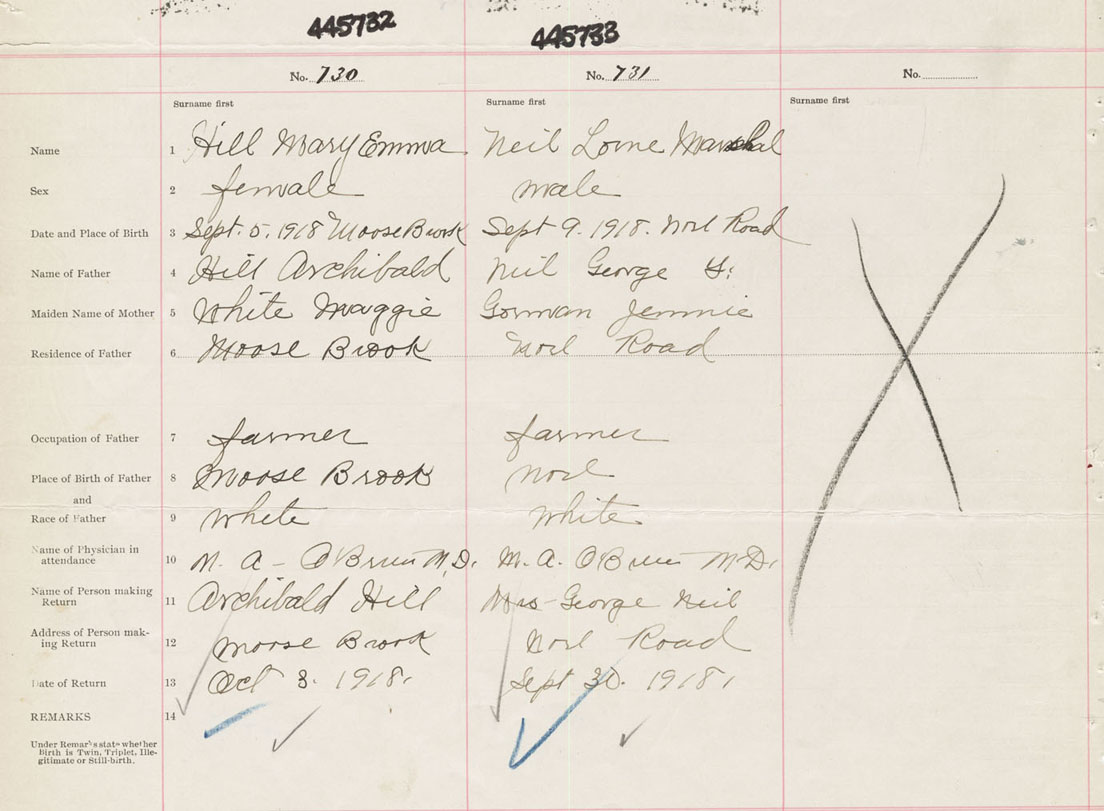 445732 445733
No. 730 No. 731 No.
Surname first Surname first Surname first
Name 1 Hill Mary Emma Neil Lorne Marshal
Sex 2 female male
Date and Place of Birth 3 Sept. 5, 1918 Moose Brook Sept 9. 1918. Noel Road
Name of Father 4 Hill Archibald Neil George
Maiden Name of Mother 5 White Maggie Gorman Jennie
Residence of Father 6 Moose Brook Noel Road
Occupation of Father 7 farmer farmer
Place of Birth of Father 8 Moose Brook Noel
and
Race of Father 9 White White
Name of Physician in
attendance 10 M. A - O'Brien M.D. M. A. O'Brien M.D.
Name of Person making
Return 11 Archibald Hill Mrs - George Neil
Address of Person mak-
ing Return 12 Moose Brook Noel Road
Date of Return 13 Oct 3. 1918. Sept 30. 1918.
REMARKS 14
Under Remarks state whether
Birth is Twin, Triplet, Ille-
gitimate or Still-birth.